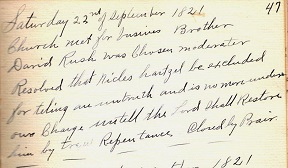 47
Saturday 22nd of September 1821
Church met for busines Brother
David Rush was Chosen moderator
Resolved that Micles hartzel be excluded
for teling an untruth and is no more under
our Charge untell the Lord Shall Restore
him by true Repentance Closed by Prair
1821